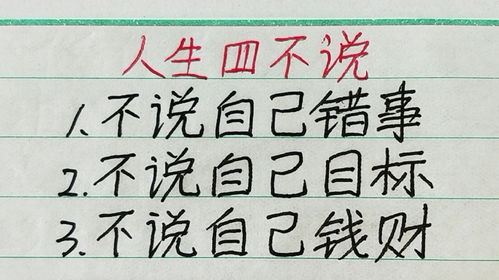 人生四不说
1.不说自己错事
2.不说自己目标
3.不说自己钱财